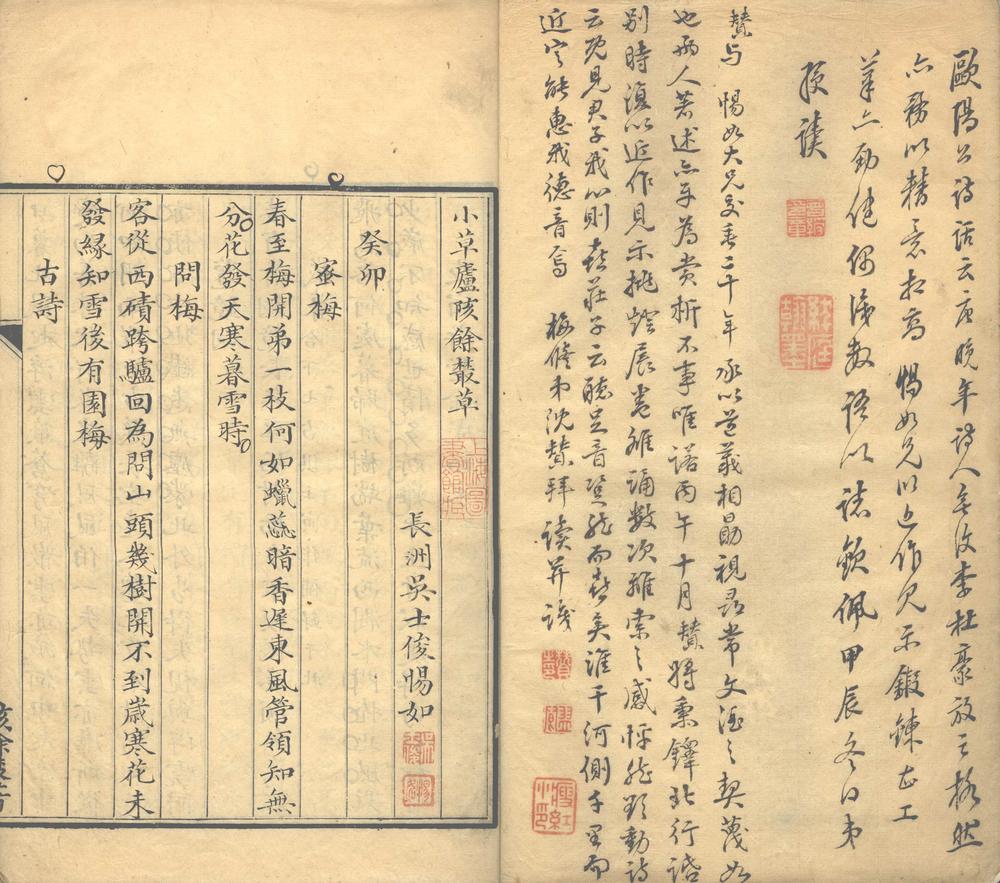 歐陽公詩話云唐晚年詩人無復李杜豪放之格然
亦務以精意相高 惕如兄以近作見示鍛鍊甚工
筆亦勁健偶漫數語以誌欽佩甲辰冬日弟
讀
贊与 惕如大兄交垂二十年承以道義相勗視尋常文酒之契蔑如
也兩人著述亦互為賞析不事唯諾丙午十月贊將秉鐸北行話
別時復以近作見示挑燈展卷雒誦數次離索之感怦然欲動詩
云既見君子我心則喜莊子云聽足音跫然而喜矣誰千河側千里而
近定能惠我德音焉 梅脩弟沈贊拜讀并識
小草廬陔餘叢草
長洲吳士俊惕如
癸卯
蜜梅
春至梅開弟一枝何如蠟蕊暗香遲東風管領知無
分花發天寒暮雪時
問梅
客從西磧跨驢回為問山頭幾樹開不到歲寒花未
發緣知雪後有園梅
古詩
陔餘叢草